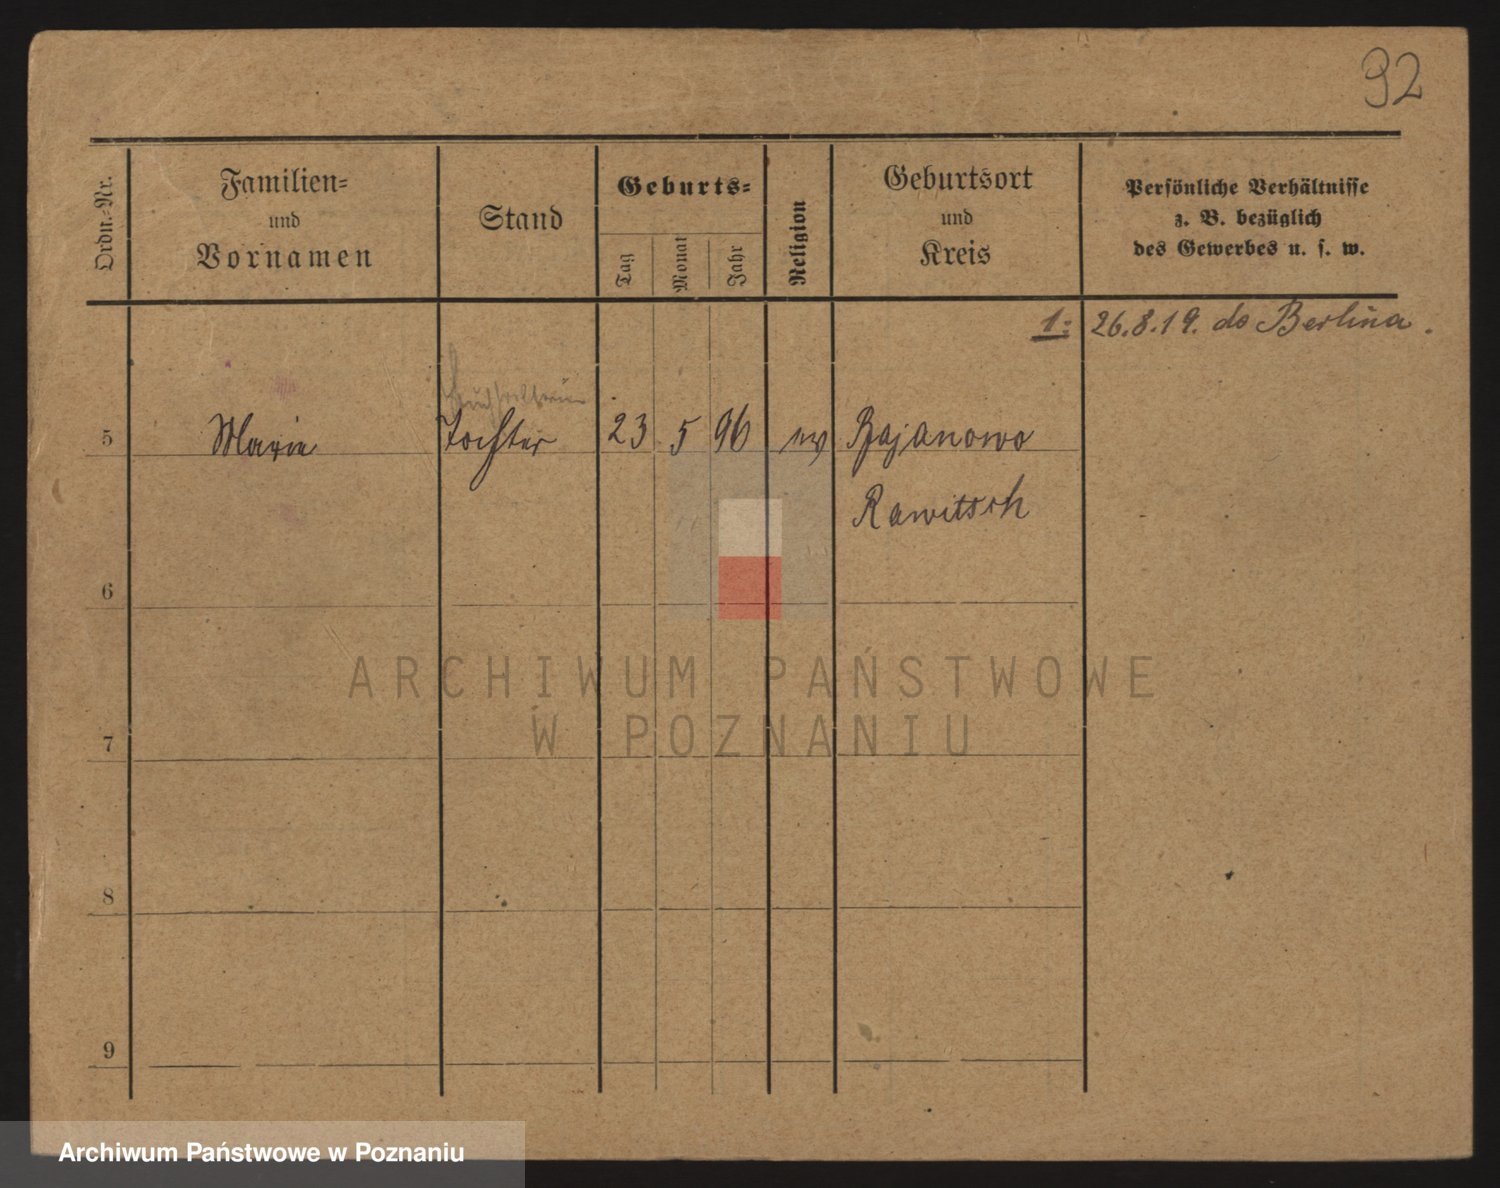 92
Ordn.=Nr.
Familien=
und
Vornamen
Stand
Geburts=
Tag
Monat
Jahr
Religion
Geburtsort
und
Kreis
Persönliche Verhältnisse
z. B. bezüglich
des Gewerbes u. s. w.
1: 26.8.19. do Berlina.
5 Marie Tochter 23 5 96 ev Bojanowo
Rawitsch
6
7
8
9
ARCHIWUM PAŃSTWOWE
W POZNANIU
Archiwum Państwowe w Poznaniu